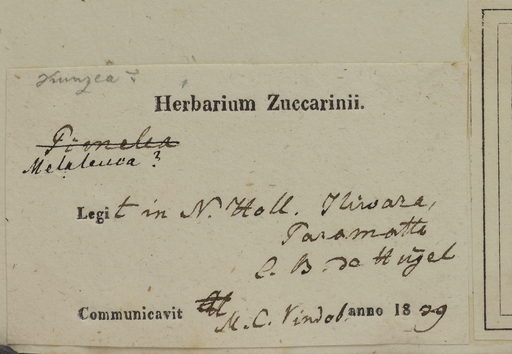 Kunzea?
Herbarium Zuccarinii.
Pimelea
Melaleuca?
Legit in N. Holl. Illwara,
Paramatta
C. B. de Hügel
Communicavit M. C. Vindob. anno 1839